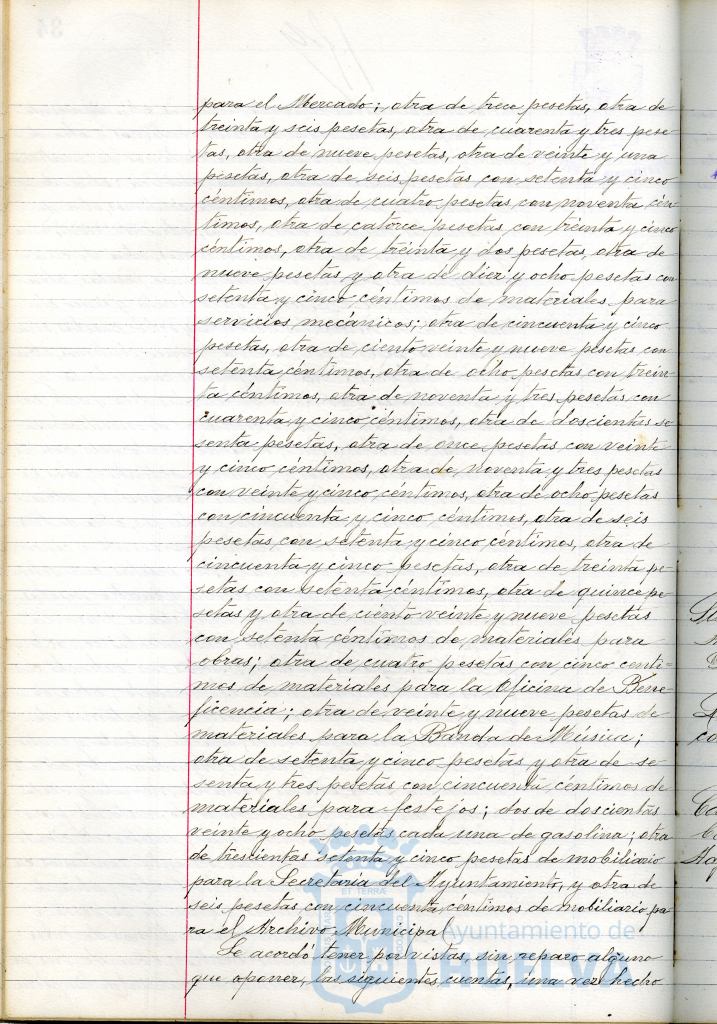 para el Mercado; otra de trece pesetas, otra de
treinta y seis pesetas, otra de cuarenta y tres pese-
tas, otra de nueve pesetas, otra de veinte y una
pesetas, otra de seis pesetas con setenta y cinco
céntimos, otra de cuatro pesetas con noventa cén-
timos, otra de catorce pesetas con treinta y cinco
céntimos, otra de treinta y dos pesetas, otra de
nueve pesetas y otra de diez y ocho pesetas con
setenta y cinco céntimos de materiales para
servicios mecánicos; otra de cincuenta y cinco
pesetas, otra de ciento veinte y nueve pesetas con
setenta céntimos, otra de ocho pesetas con trein-
ta céntimos, otra de noventa y tres pesetas con
cuarenta y cinco céntimos, otra de doscientas se-
senta pesetas, otra de once pesetas con veinte
y cinco céntimos, otra de noventa y tres pesetas
con veinte y cinco céntimos, otra de ocho pesetas
con cincuenta y cinco céntimos, otra de seis
pesetas con setenta y cinco céntimos, otra de
cincuenta y cinco pesetas, otra de treinta pe-
setas con setenta céntimos, otra de quince pe-
setas y otra de ciento veinte y nueve pesetas
con setenta céntimos de materiales para
obras; otra de cuatro pesetas con cinco cénti-
mos de materiales para la Oficina de Bene-
ficencia; otra de veinte y nueve pesetas de
materiales para la Banda de Música;
otra de setenta y cinco pesetas y otra de se-
senta y tres pesetas con cincuenta céntimos de
materiales para festejos; dos de doscientas
veinte y ocho pesetas cada una de gasolina; otra
de trescientas setenta y cinco pesetas de mobiliario
para la Secretaría del Ayuntamiento, y otra de
seis pesetas con cincuenta céntimos de mobiliario pa-
ra el Archivo Municipal
Ayuntamiento de
HUELVA
Se acordó tener por vistas, sin reparo alguno
que oponer, las siguientes cuentas, una vez hecho